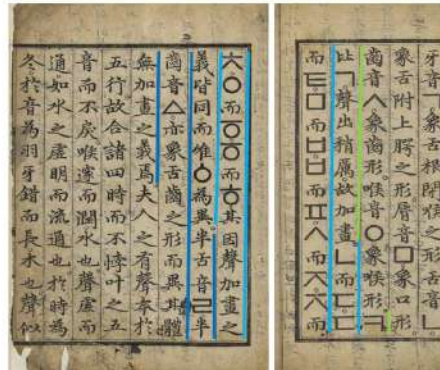 牙音ㄱ象舌根閉喉之形。舌音ㄴ
象舌附上腭之形。脣音ㅁ象口形。
齒音ㅅ象齒形。喉音ㅇ象喉形。ㅋ
比ㄱ聲出稍厲故加畫。ㄴ而ㄷㄷ
而ㅌㅁ而ㅂㅂ而ㅍㅅ而ㅈㅈ而
ㅊㅇ而ㆆㆆ而ㅎ其因聲加畫之
義皆同而唯ㆁ為異。半舌音ㄹ半
齒音ㅿ亦象舌齒之形而異其體
無加畫之義焉。夫人之有聲本於
五行故合諸四時而不悖叶之五
音而不戾。喉邃而潤水也。聲虛而
通如水之虛明而流通也。於時為
冬於音為羽。牙錯而長木也。聲似